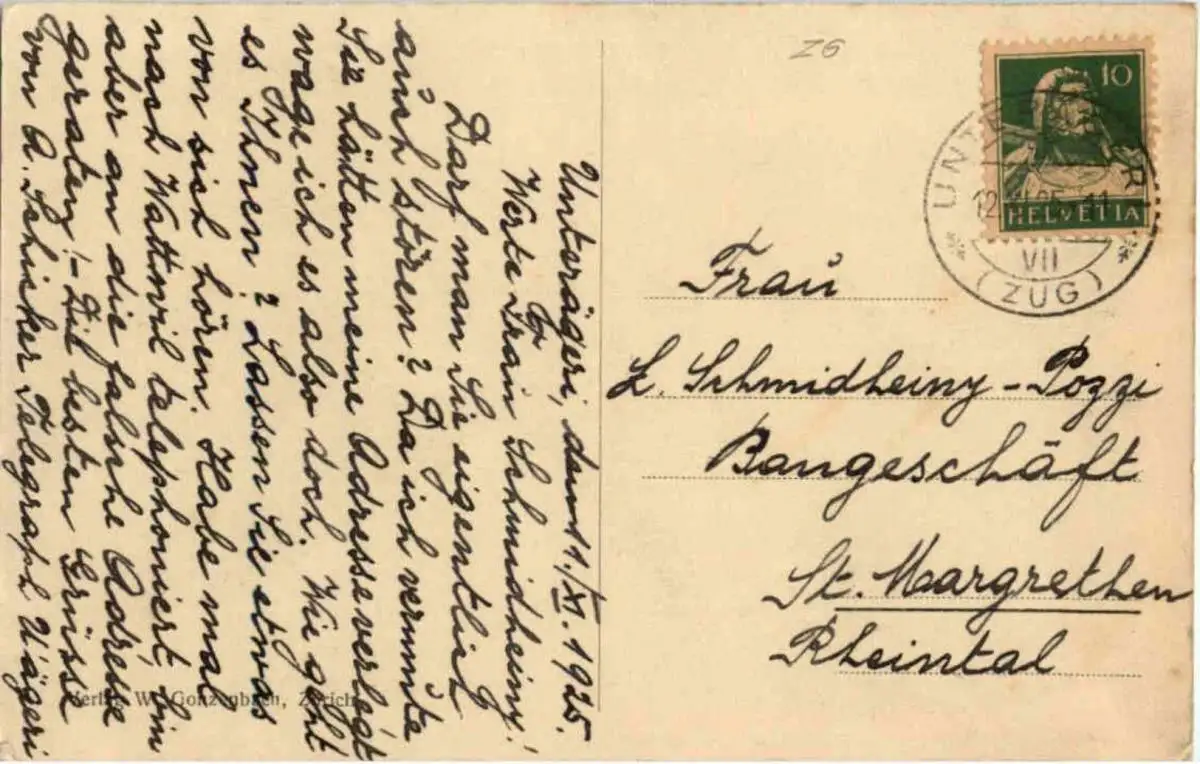 Unterägeri, den 11./XI. 1925.
Werte Frau Schmidheiny!
Darf man Sie eigentlich
auch stören? Da ich vermute
Sie hätten meine Adresse verlegt
wage ich es also doch. Wie geht
es Ihnen? Lassen Sie etwas
von sich hören. Habe mal
nach Wattwil telephoniert, bin
aber an die falsche Adresse
geraten! - Die besten Grüsse
von A. Schicker Telegraph U'ägeri
Z6
10
HELVETIA
12.XI.25.-11
VII
(ZUG)
Frau
L. Schmidheiny-Pozzi
Baugeschäft
St. Margrethen
Rheintal
Verlag W. Gonzenbach, Zürich